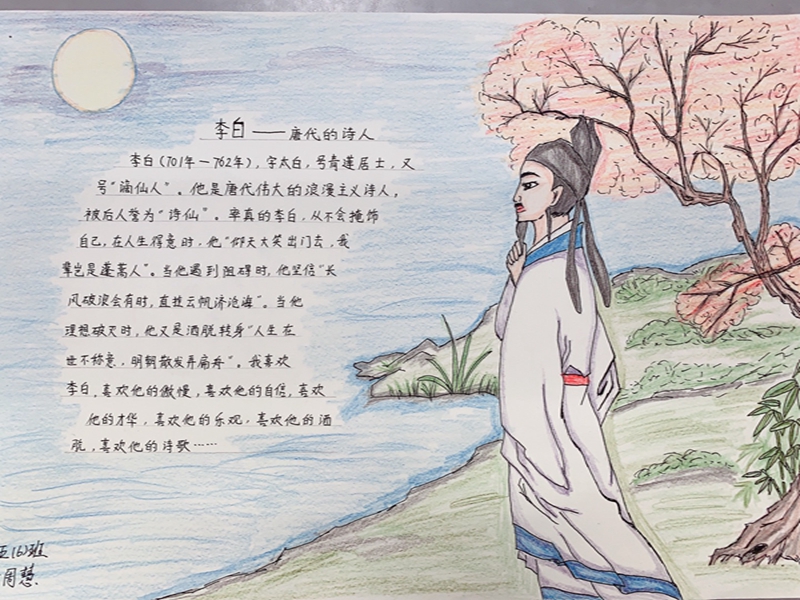 李白——唐代的诗人
李白(701年—762年),字太白,号青莲居士,又
号"谪仙人"。他是唐代伟大的浪漫主义诗人,
被后人誉为"诗仙"。率真的李白,从不会掩饰
自己,在人生得意时,他"仰天大笑出门去,我
辈岂是蓬蒿人"。当他遇到阻碍时,他坚信"长
风破浪会有时,直挂云帆济沧海"。当他
理想破灭时,他又是洒脱转身"人生在
世不称意,明朝散发弄扁舟"。我喜欢
李白,喜欢他的傲慢,喜欢他的自信,喜欢
他的才华,喜欢他的乐观,喜欢他的洒
脱,喜欢他的诗歌……
五(6)班
周慧